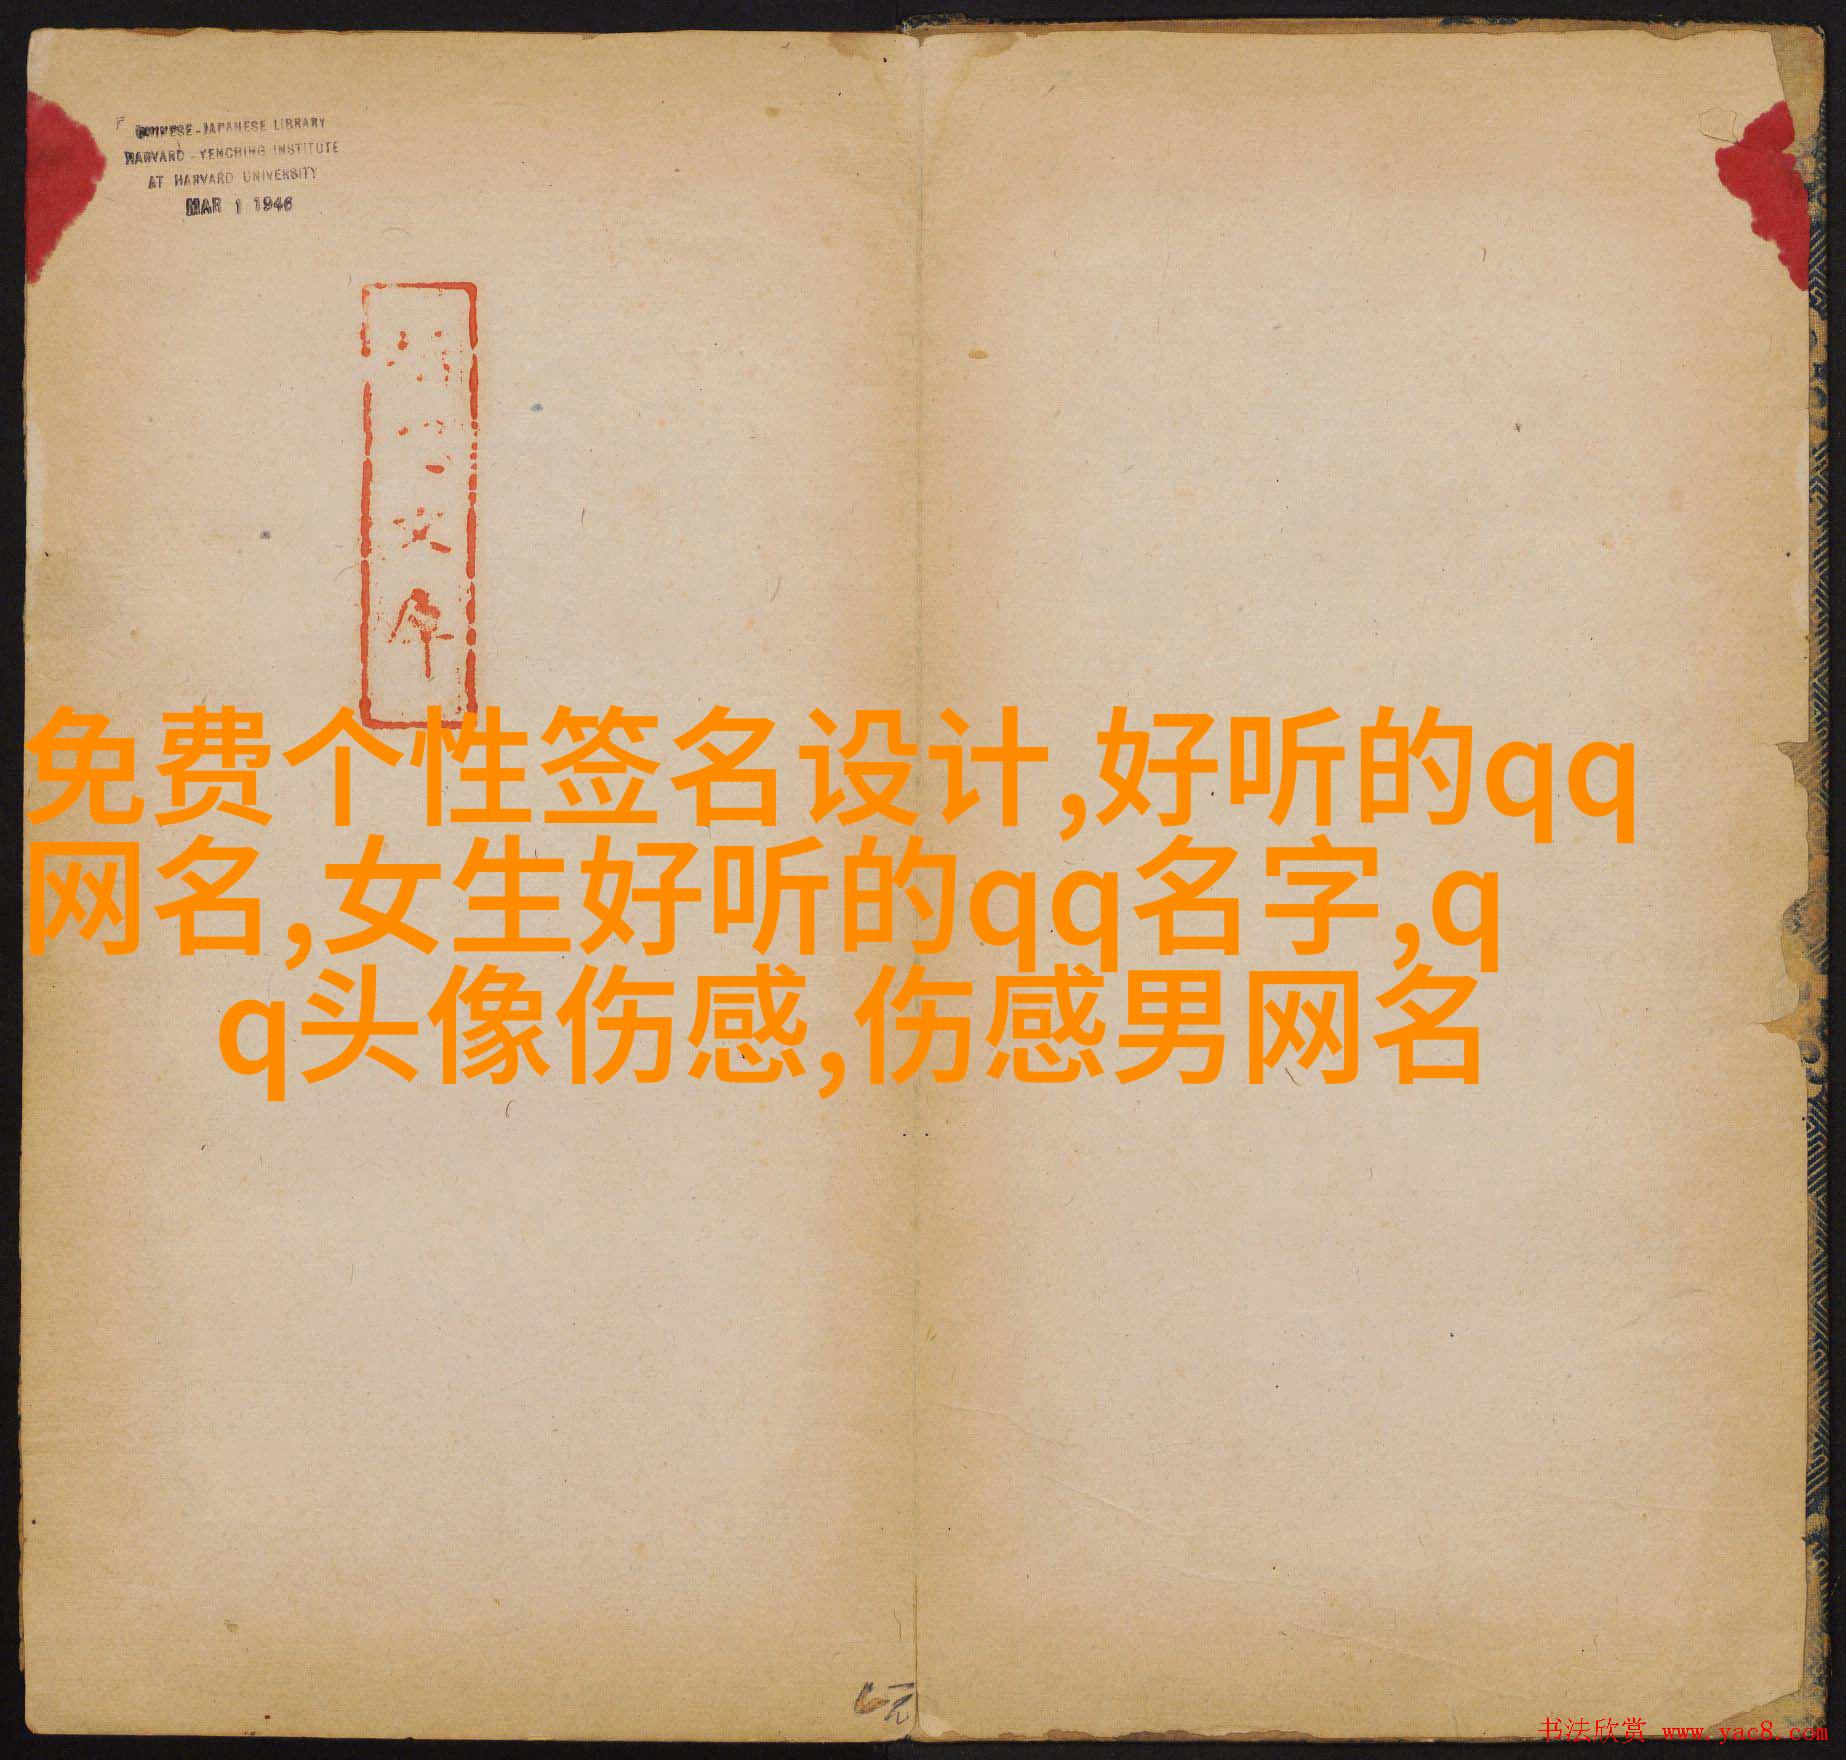 CHINESE-JAPANESE LIBRARY
HARVARD-YENCHING INSTITUTE
AT HARVARD UNIVERSITY
MAR 1 1946
免费个性签名设计,好听的qq
网名,女生好听的qq名字,q
q头像伤感,伤感男网名
元
书法欣赏 www.yac8.com